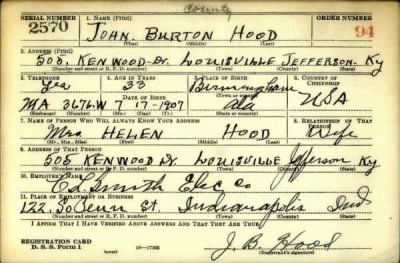 County
SERIAL NUMBER 1. NAME (Print) ORDER NUMBER
2570 JOHN. BURTON HOOD 94
(First) (Middle) (Last)
2. ADDRESS (Print)
508, KENWOOD-Dr. LOUISVILLE JEFFERSON. Ky
(Number and street or R. F. D. number) (Town) (County) (State)
3. TELEPHONE 4. AGE IN YEARS 5. PLACE OF BIRTH 6. COUNTRY OF CITIZENSHIP
Yes 33 Birmingham
DATE OF BIRTH (Town or county)
MA 3676.W 7 17-1907 Ala USA
(Exchange) (Number) (Mo.) (Day) (Yr.) (State or country)
7. NAME OF PERSON WHO WILL ALWAYS KNOW YOUR ADDRESS 8. RELATIONSHIP OF THAT PERSON
Mrs. HELEN HOOD Wife
(Mr., Mrs., Miss) (First) (Middle) (Last)
9. ADDRESS OF THAT PERSON
505 KENWOOD Dr LOUISVILLE Jefferson Ky
(Number and street or R. F. D. number) (Town) (County) (State)
10. EMPLOYER'S NAME
Smith Elec Co
11. PLACE OF EMPLOYMENT OR BUSINESS
122. So Penn St. Indianapolis Ind
(Number and street or R. F. D. number) (Town) (County) (State)
I AFFIRM THAT I HAVE VERIFIED ABOVE ANSWERS AND THAT THEY ARE TRUE.
REGISTRATION CARD
D. S. S. Form 1
J. B. Hood
(Registrant's signature)